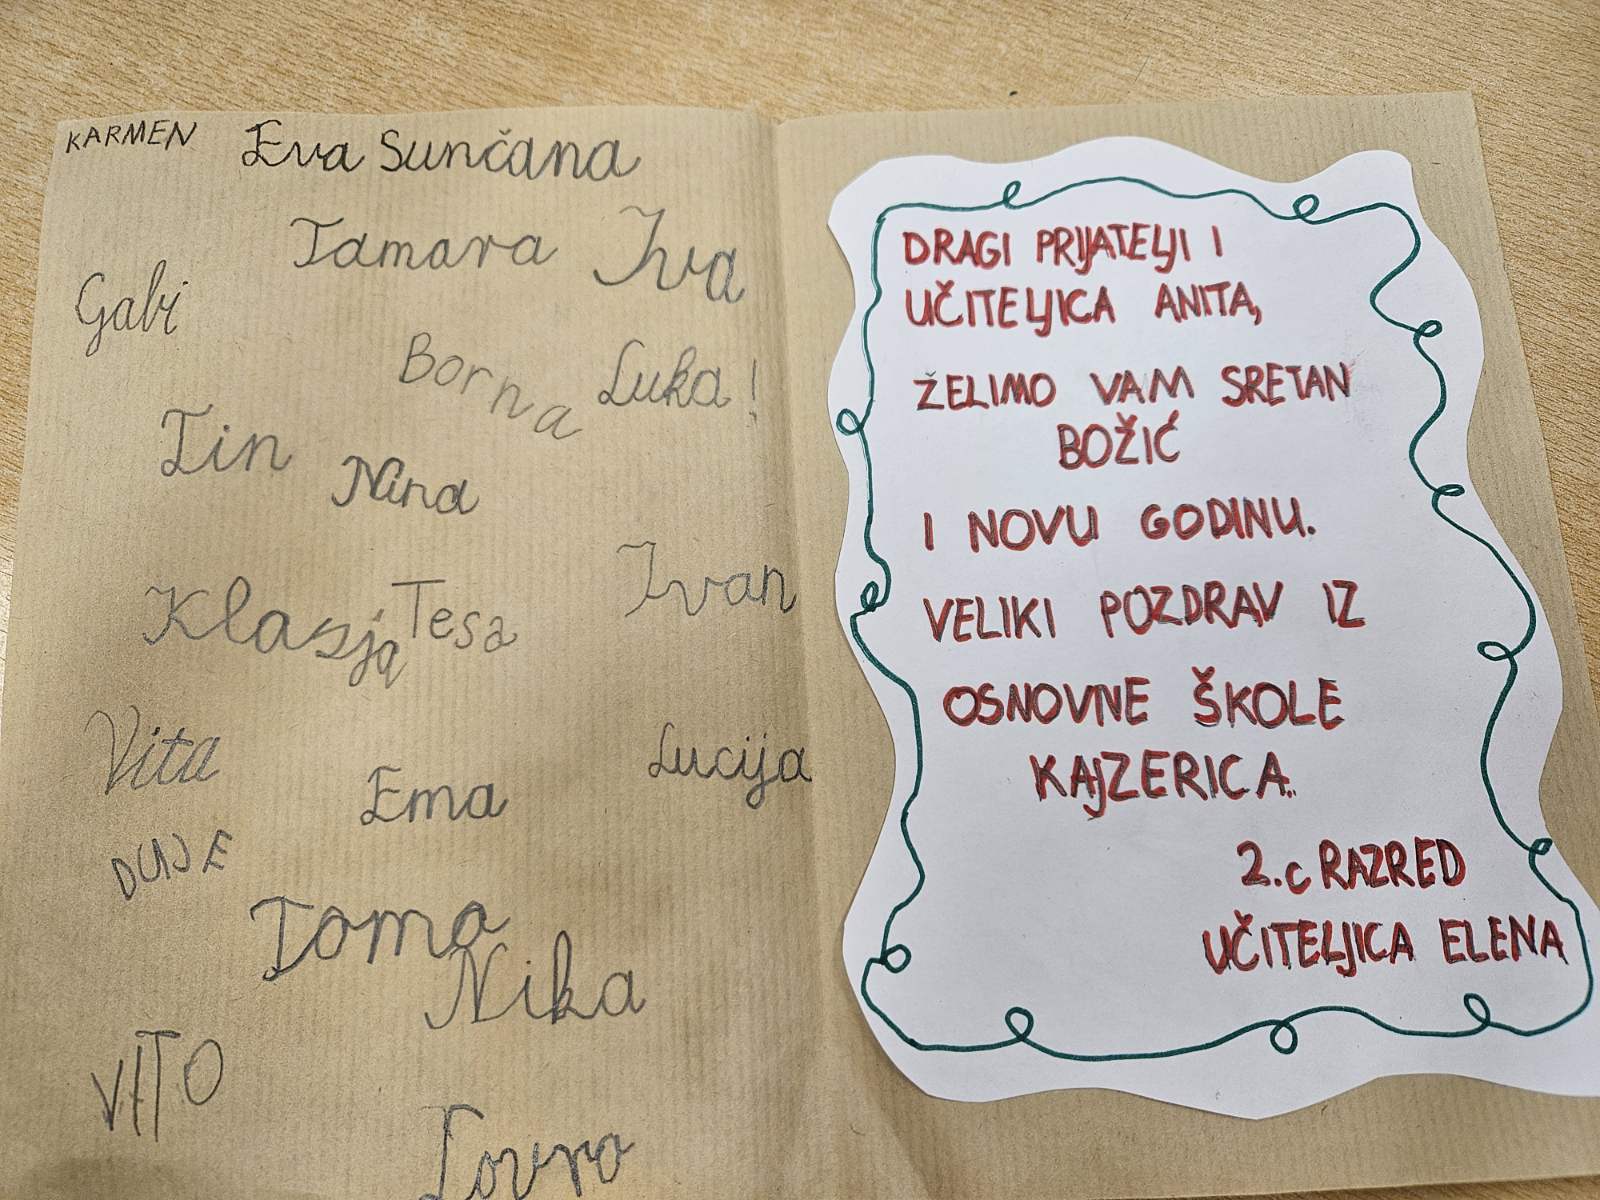 KARMEN Eva Sunčana
Tamara Iva
Gabi
Borna Luka!
Tin Nina
Klasja Tesa Ivan
Vita Ema Lucija
DUJE
Toma
Nika
VITO
Lovro
DRAGI PRIJATELJI I
UČITELJICA ANITA,
ŽELIMO VAM SRETAN
BOŽIĆ
I NOVU GODINU.
VELIKI POZDRAV IZ
OSNOVNE ŠKOLE
KAJZERICA.
2.c RAZRED
UČITELJICA ELENA